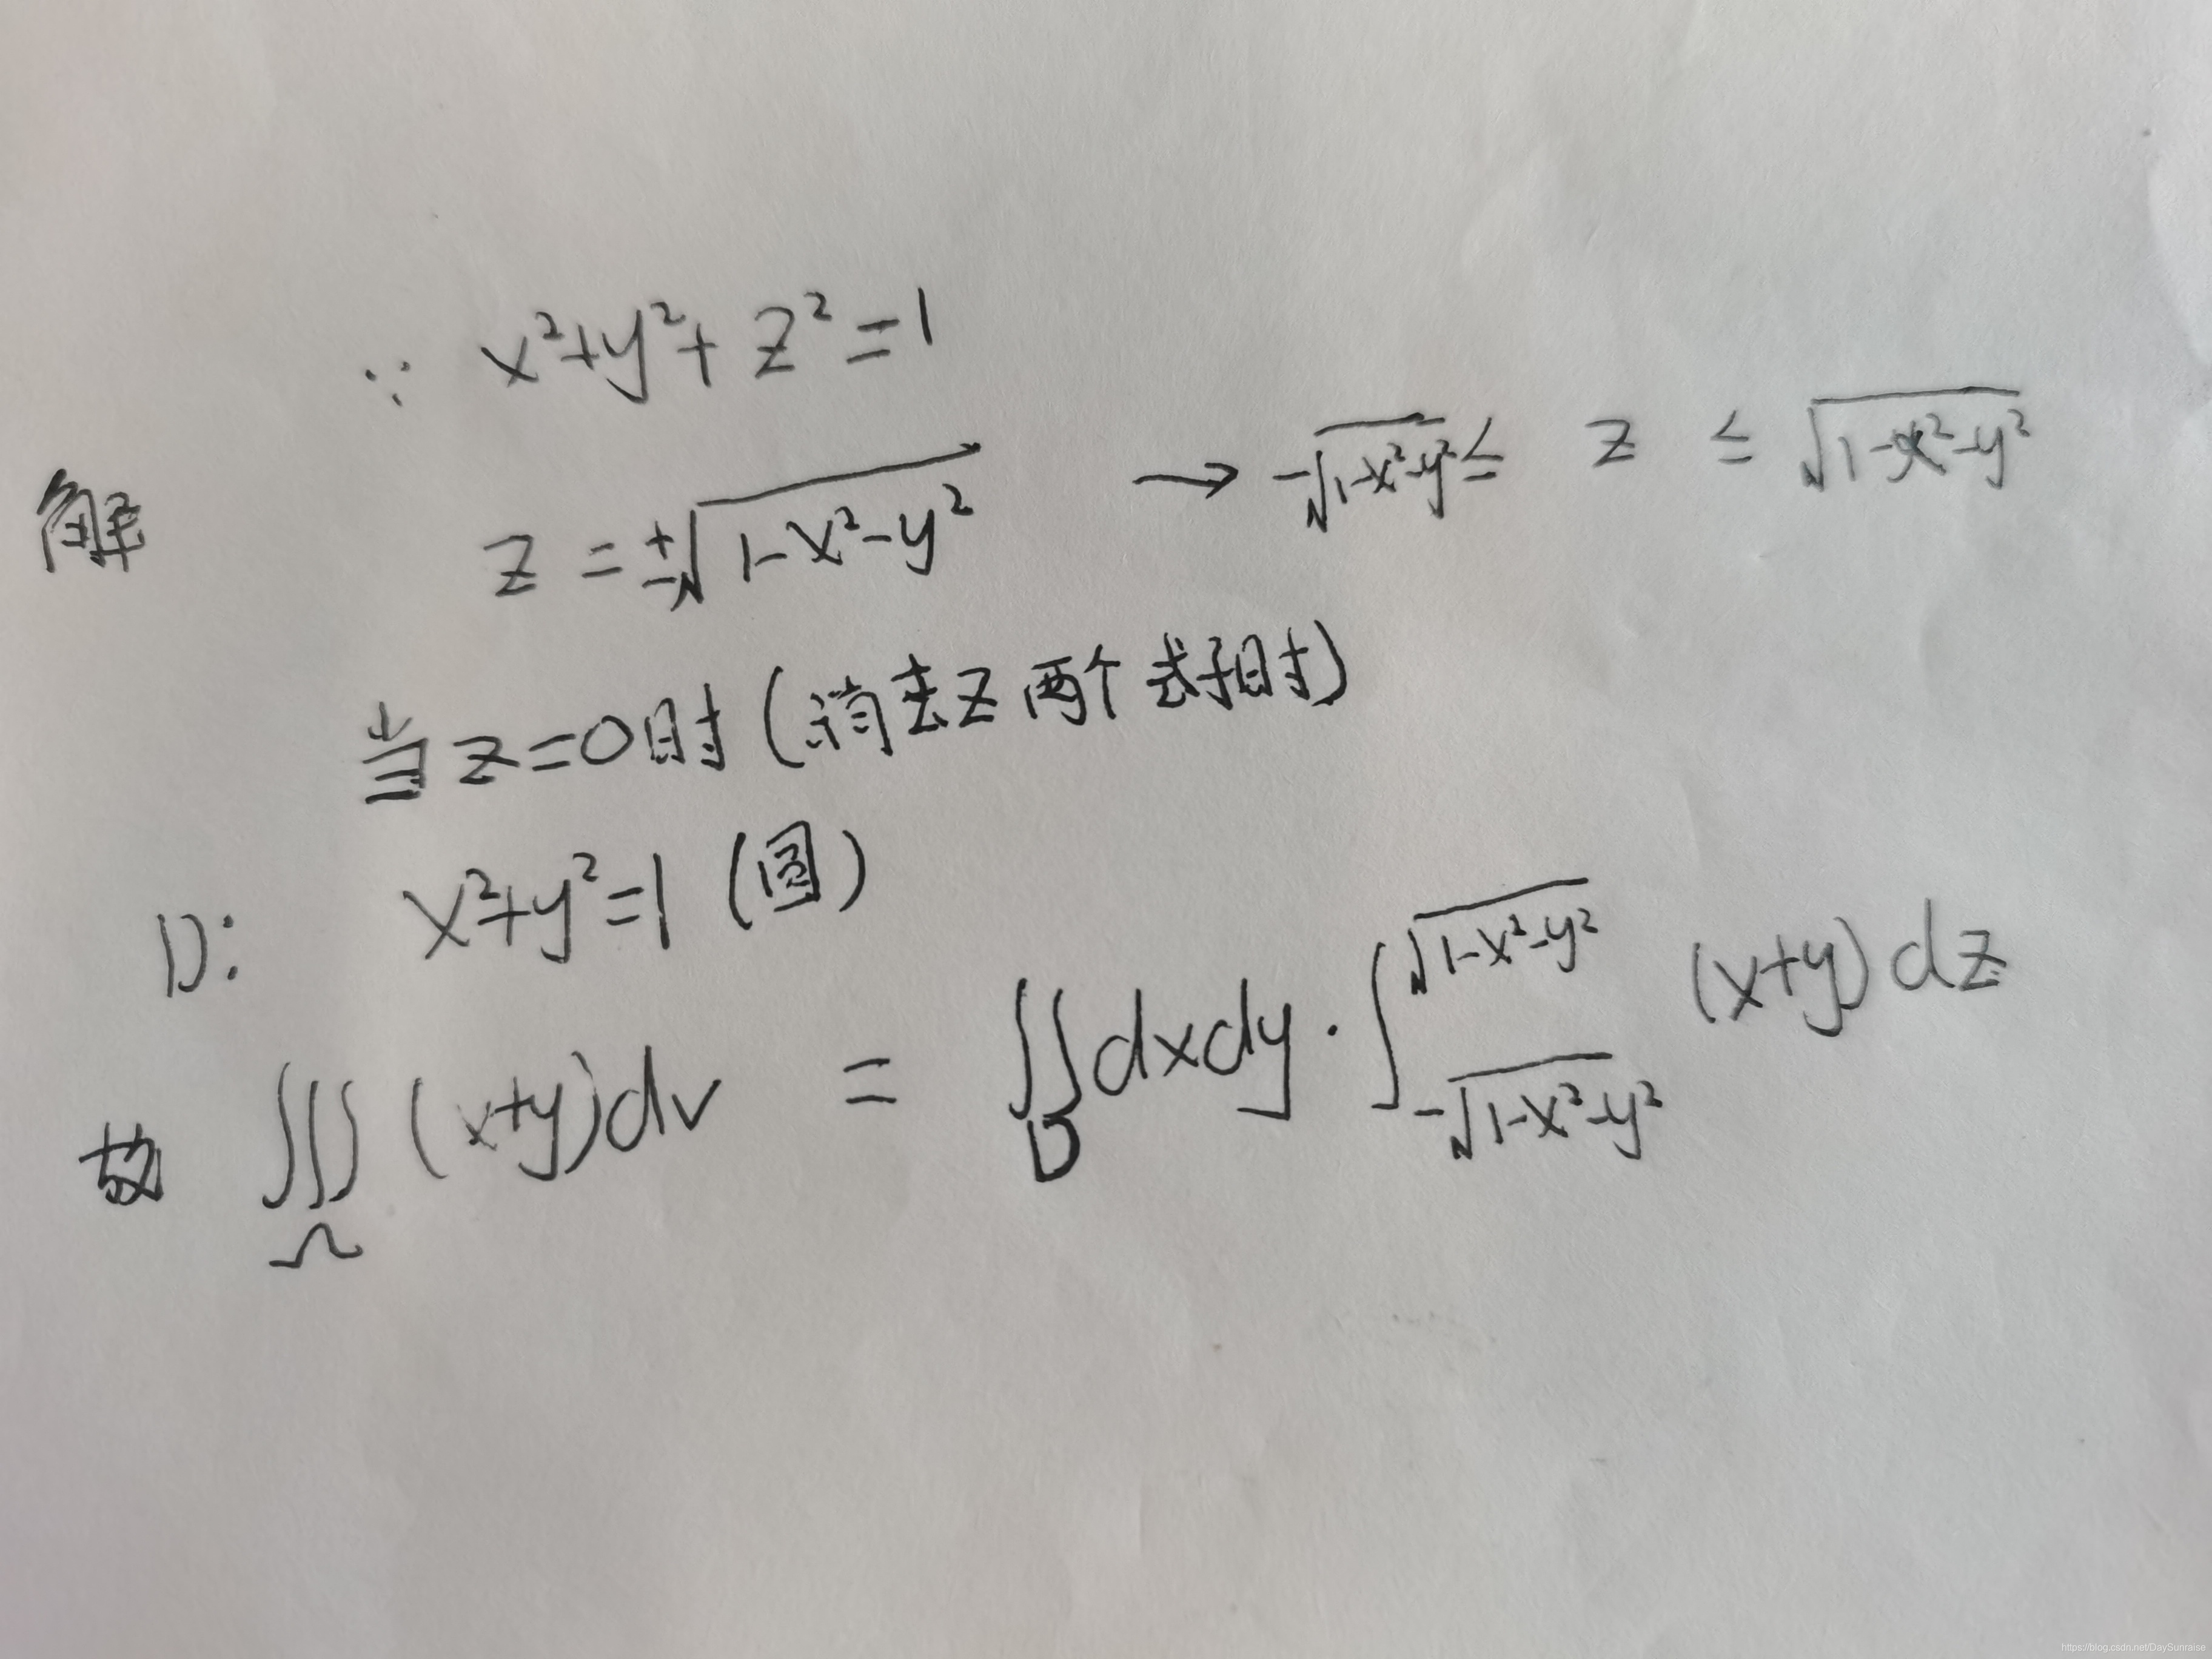 ∵ x²+y²+z²=1
解 z=±√(1-x²-y²) → -√(1-x²-y²) ≤ z ≤ √(1-x²-y²)
当z=0时(消去z两个式子时)
D: x²+y²=1 (圆)
故 ∭_Ω (x+y)dv = ∬_D dxdy·∫_{-√(1-x²-y²)}^{√(1-x²-y²)} (x+y)dz
https://blog.csdn.net/DaySunraise